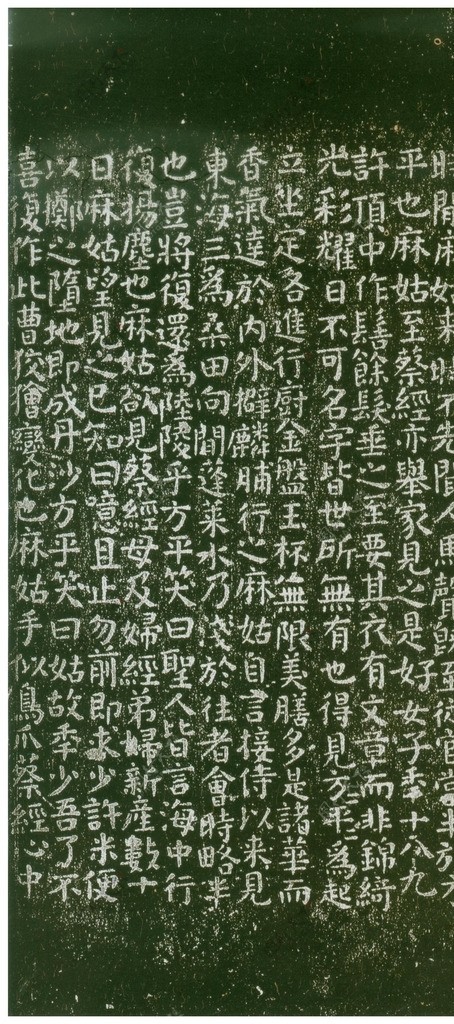 時聞麻姑來時不先聞人馬聲既至從官當半於方
平也麻姑至蔡經亦舉家見之是好女子年十八九
許頂中作髻餘髮垂之至要其衣有文章而非錦綺
光彩耀日不可名字皆世所無有也得見方〻平〻為起
立坐定各進行廚金盤玉杯無限美膳多是諸華而
香氣達於內外擗麟脯行之麻姑自言接侍以來見
東海三為桑田向間蓬萊水乃淺於往者會時略半
也豈將復還為陸陵乎方平笑曰聖人皆言海中行
復揚塵也麻姑欲見蔡經母及婦經弟婦新產數十
日麻姑望見之已知曰噫且止勿前即求少許米便
以擲之墮地即成丹沙方平笑曰姑故年少吾了不
喜復作此曹狡獪變化也麻姑手似鳥爪蔡經心中